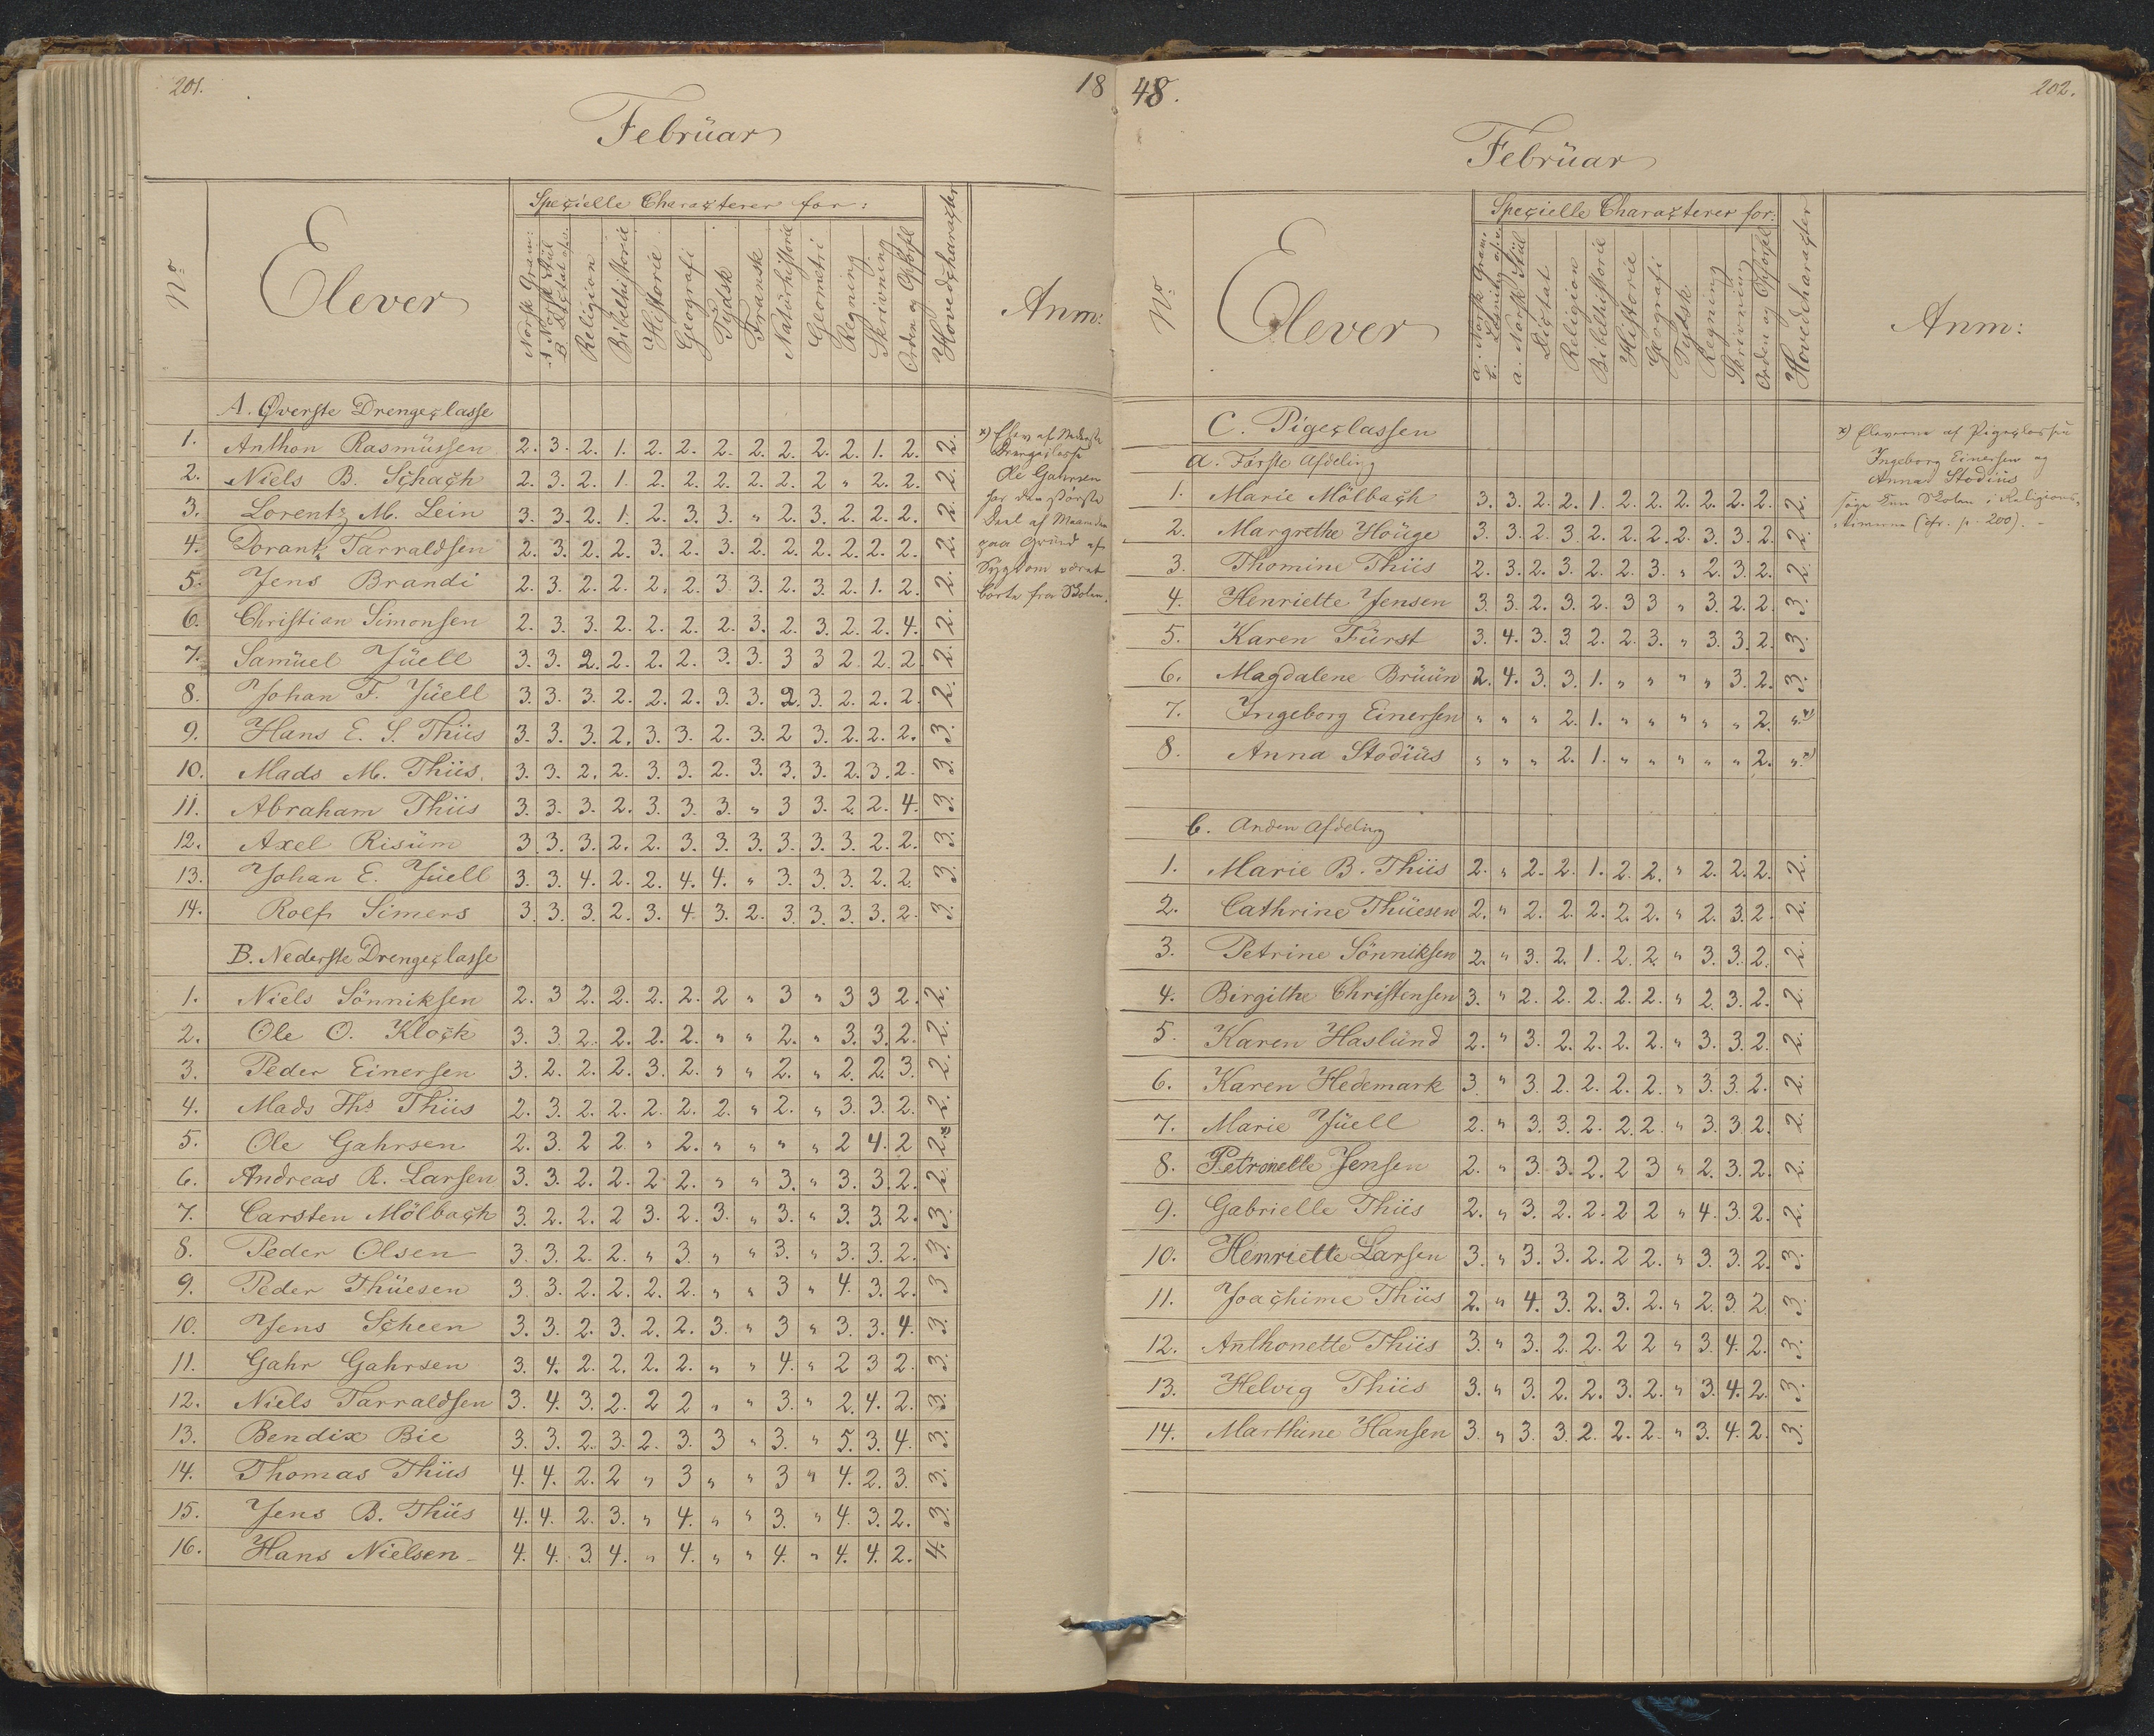 201.
18
Februar
No
Elever
Specielle Characterer for:
Norsk Gram:
A Norsk Stiil
B Dictat
Religion
Bibelhistorie
Historie
Geografi
Tydsk
Fransk
Naturhistorie
Geometri
Regning
Skrivning
Orden og Opførsl
Hovedcharacter
Anm:
A. Øverste Drengeclasse
1. Anthon Rasmussen 2. 3. 2. 1. 2. 2. 2. 2. 2. 2. 2. 1. 2. 2.
2. Niels B. Schach 2. 3. 2. 1. 2. 2. 2. 2. 2. 2 " 2. 2. 2.
3. Lorentz M. Lein 3. 3. 2. 1. 2. 3. 3. " 2. 3. 2. 2. 2. 2.
4. Dorant Tarraldsen 2. 3. 2. 2. 3. 2. 3. 2. 2. 2. 2. 2. 2. 2.
5. Jens Brandi 2. 3. 2. 2. 2. 2. 3. 3. 2. 3. 2. 1. 2. 2.
6. Christian Simonsen 2. 3. 3. 2. 2. 2. 2. 3. 2. 3. 2. 2. 4. 2.
7. Samuel Juell 3. 3. 2. 2. 2. 2. 3. 3. 3 3 2 2. 2 2.
8. Johan F. Juell 3. 3. 3. 2. 2. 2. 3. 3. 2. 3. 2. 2. 2 2.
9. Hans E. S. Thiis 3. 3. 3. 2. 3. 3. 2. 3. 2 3. 2. 2. 2. 3.
10. Mads M. Thiis. 3. 3. 2. 2. 3. 3. 2. 3. 3. 3. 2. 3. 2. 3.
11. Abraham Thiis 3. 3. 3. 2. 3. 3. 3. " 3 3. 2. 2. 4. 3.
12. Axel Risum 3. 3. 3. 2. 2. 3. 3. 3. 3. 3. 3. 2. 2. 3.
13. Johan E. Juell 3. 3. 4. 2. 2. 4. 4. " 3. 3. 3. 2. 2. 3.
14. Rolf Simers 3. 3. 3. 2. 3. 4. 3. 2. 3. 3. 3. 3. 2. 3.
B. Nederste Drengeclasse
1. Niels Sönniksen 2. 3 2. 2. 2. 2. 2 " 3 " 3 3 2. 2.
2. Ole O. Klock 3. 3. 2. 2. 2. 2. " " 2. " 3. 3. 2. 2.
3. Peder Einersen 3. 2. 2. 2. 3. 2. " " 2. " 2. 2. 3. 2.
4. Mads Ths Thiis 2. 3. 2. 2. 2. 2. 2. " 2. " 3. 3. 2. 2.
5. Ole Gahrsen 2. 3. 2 2. " 2. " " " " 2 4. 2 2. x
6. Andreas R. Larsen 3. 3. 2. 2. 2 2. " " 3. " 3. 3. 2. 2.
7. Carsten Mölbach 3. 2. 2. 2 3. 2. 3. " 3. " 3. 3. 2. 3.
8. Peder Olsen 3. 3. 2. 2. " 3. " " 3. " 3. 3. 2. 3.
9. Peder Thuesen 3. 3. 2. 2. 2. 2. " " 3 " 4. 3. 2. 3
10. Jens Scheen 3. 3. 2. 3. 2. 2. 3. " 3 " 3. 3. 4. 3.
11. Gahr Gahrsen 3. 4. 2. 2. 2. 2. " " 4. " 2 3 2. 3.
12. Niels Tarraldsen 3. 4. 3. 2. 2 2 " " 3. " 2. 4. 2. 3.
13. Bendix Bie 3. 3. 2. 3. 2. 3. 3 " 3. " 5. 3. 4. 3.
14. Thomas Thiis 4. 4. 2. 2 " 3 " " 3 " 4. 2. 3. 3.
15. Jens B. Thiis 4. 4. 2. 3. " 4. " " 3. " 4. 3. 2. 3.
16. Hans Nielsen 4. 4. 3. 4. " 4. " " 4. " 4. 4. 2. 4.
x) Elev af Nederste
Drengeclasse
Ole Gahrsen
har den største
Deel af Maaneden
paa Grund af
Sygdom været
borte fra Skolen.
48.
202.
Februar
No
Elever
Specielle Characterer for:
a. Norsk Gram.
b. Læsning
a. Norsk Stiil
Dictat
Religion
Bibelhistorie
Historie
Geografi
Tydsk
Regning
Skrivning
Orden og Opførsl
Hovedcharacter
Anm:
C. Pigeclassen
a. Første Afdeling
1. Marie Mölbach 3. 3. 2. 2. 1. 2. 2. 2. 2. 2. 2. 2.
2. Margrethe Houge 3. 3. 2. 3. 2. 2. 2. 2. 3. 3. 2. 2.
3. Thomine Thiis 2. 3. 2. 3. 2. 2. 3. " 2. 3. 2. 2.
4. Henriette Jensen 3. 3. 2. 3. 2. 3 3 " 3. 2. 2. 3.
5. Karen Fürst 3. 4. 3. 3 2. 2. 3. " 3. 3. 2. 3.
6. Magdalene Bruun 2. 4. 3. 3. 1. " " " " 3. 2. 3.
7. Ingeborg Einersen " " " 2. 1. " " " " " 2. " x)
8. Anna Stodius " " " 2. 1. " " " " " 2. " x)
b. Anden Afdeling
1. Marie B. Thiis 2. " 2. 2. 1. 2. 2. " 2. 2. 2. 2.
2. Cathrine Thuesen 2. " 2. 2. 2. 2. 2. " 2. 3. 2. 2.
3. Petrine Sönniksen 2. " 3. 2. 1. 2. 2. " 3. 3. 2. 2.
4. Birgithe Christensen 3. " 2. 2. 2. 2. 2. " 2. 3. 2. 2.
5. Karen Haslund 2. " 3. 2. 2. 2. 2. " 3. 3. 2. 2.
6. Karen Hedemark 3. " 3. 2. 2. 2. 2. " 3. 3. 2. 2.
7. Marie Juell 2. " 3. 3. 2. 2. 2. " 3. 3. 2. 2.
8. Petronelle Jensen 2. " 3. 3. 2. 2 3 " 2. 3. 2. 2.
9. Gabrielle Thiis 2. " 3. 2. 2. 2 2 " 4. 3. 2. 2.
10. Henriette Larsen 3. " 3. 3. 2. 2 2. " 3. 3. 2. 3.
11. Joachime Thiis 2. " 4. 3. 2. 3. 2. " 2. 3. 2 3.
12. Anthonette Thiis 3. " 3. 2. 2. 2 2 " 3. 4. 2. 3.
13. Helvig Thiis 3. " 3. 2. 2. 3. 2. " 3. 4. 2. 3.
14. Marthine Hansen 3. " 3. 3. 2. 2. 2. " 3. 4. 2. 3.
x) Eleverne af Pigeclassen
Ingeborg Einersen og
Anna Stodius
søge kun Skolen i Religions-
timerne (cfr. p. 200).